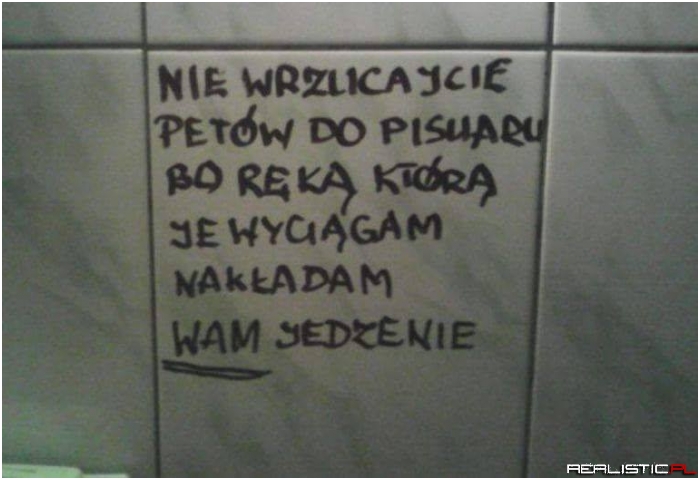 NIE WRZUCAJCIE
PETÓW DO PISUARU
BO RĘKĄ KTÓRĄ
JE WYCIĄGAM
NAKŁADAM
WAM JEDZENIE
REALISTIC.PL